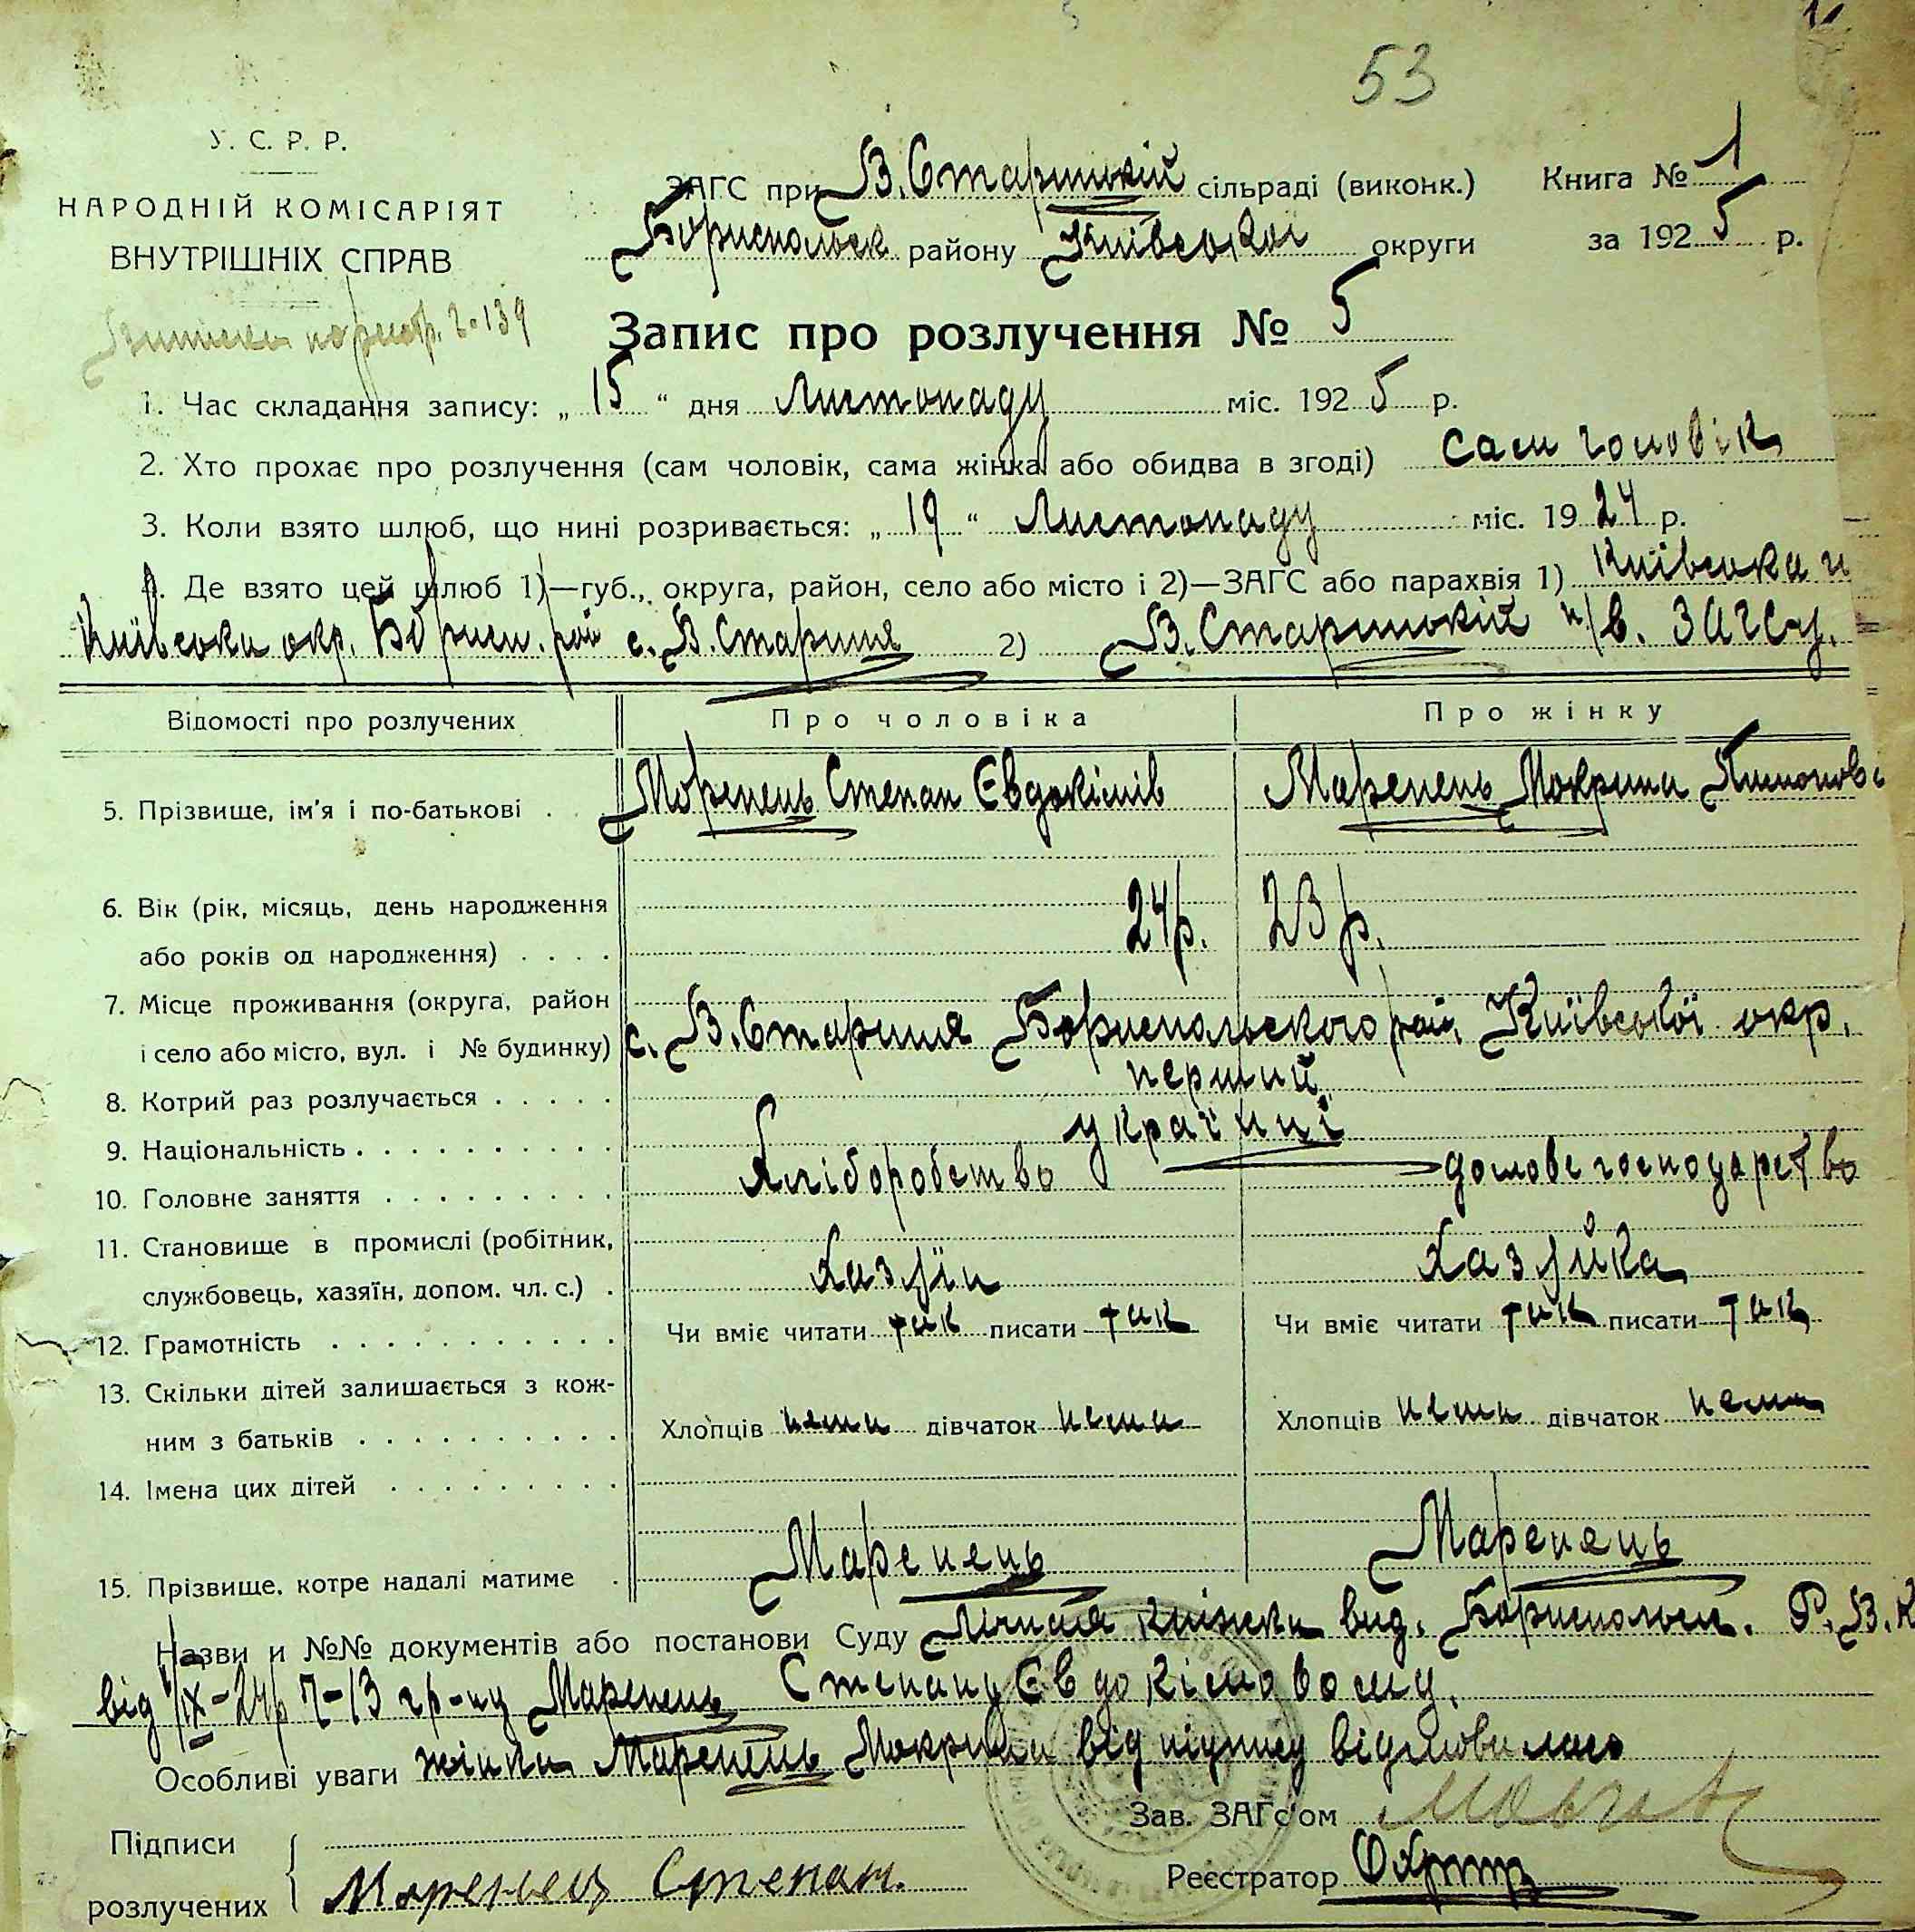 53
У. С. Р. Р.
НАРОДНІЙ КОМІСАРІЯТ
ВНУТРІШНІХ СПРАВ
ЗАГС при В. Старицькій сільраді (виконк.) Книга № 1
Бориспольск району Київської округи за 1925 р.
ч. 139
Запис про розлучення № 5
1. Час складання запису: „ 15 “ дня Листопаду міс. 1925 р.
2. Хто прохає про розлучення (сам чоловік, сама жінка або обидва в згоді) сам чоловік
3. Коли взято шлюб, що нині розривається: „ 19 “ Листопаду міс. 1924 р.
4. Де взято цей шлюб 1)—губ., округа, район, село або місто і 2)—ЗАГС або парахвія 1) Київська
Київська окр. Борисп. рай с. В. Стариця 2) В. Старицькій ЗАГСу.
Відомості про розлучених Про чоловіка Про жінку
5. Прізвище, ім'я і по-батькові Моренець Степан Євдокімів Маренець Мокрина
6. Вік (рік, місяць, день народження
або років од народження) 24 р. 23 р.
7. Місце проживання (округа, район
і село або місто, вул. і № будинку) с. В. Стариця Бориспольского рай. Київської окр.
8. Котрий раз розлучається перший
9. Національність українці
10. Головне заняття Хліборобство домове господарство
11. Становище в промислі (робітник,
службовець, хазяїн, допом. чл. с.) Хазяїн Хазяйка
12. Грамотність Чи вміє читати так писати так Чи вміє читати так писати так
13. Скільки дітей залишається з кож-
ним з батьків Хлопців нема дівчаток нема Хлопців нема дівчаток нема
14. Імена цих дітей
15. Прізвище, котре надалі матиме Маренець Маренець
Назви и №№ документів або постанови Суду Лічная кніжка вид. Бориспольск. Р.В.К
від /IX-24р ч-13 гр-ну Маренець Степану Євдокімовому.
Особливі уваги жінка Маренець Мокрина від підпису відмовилась
Зав. ЗАГс'ом
Підписи
розлучених Моренець Степан.
Реєстратор